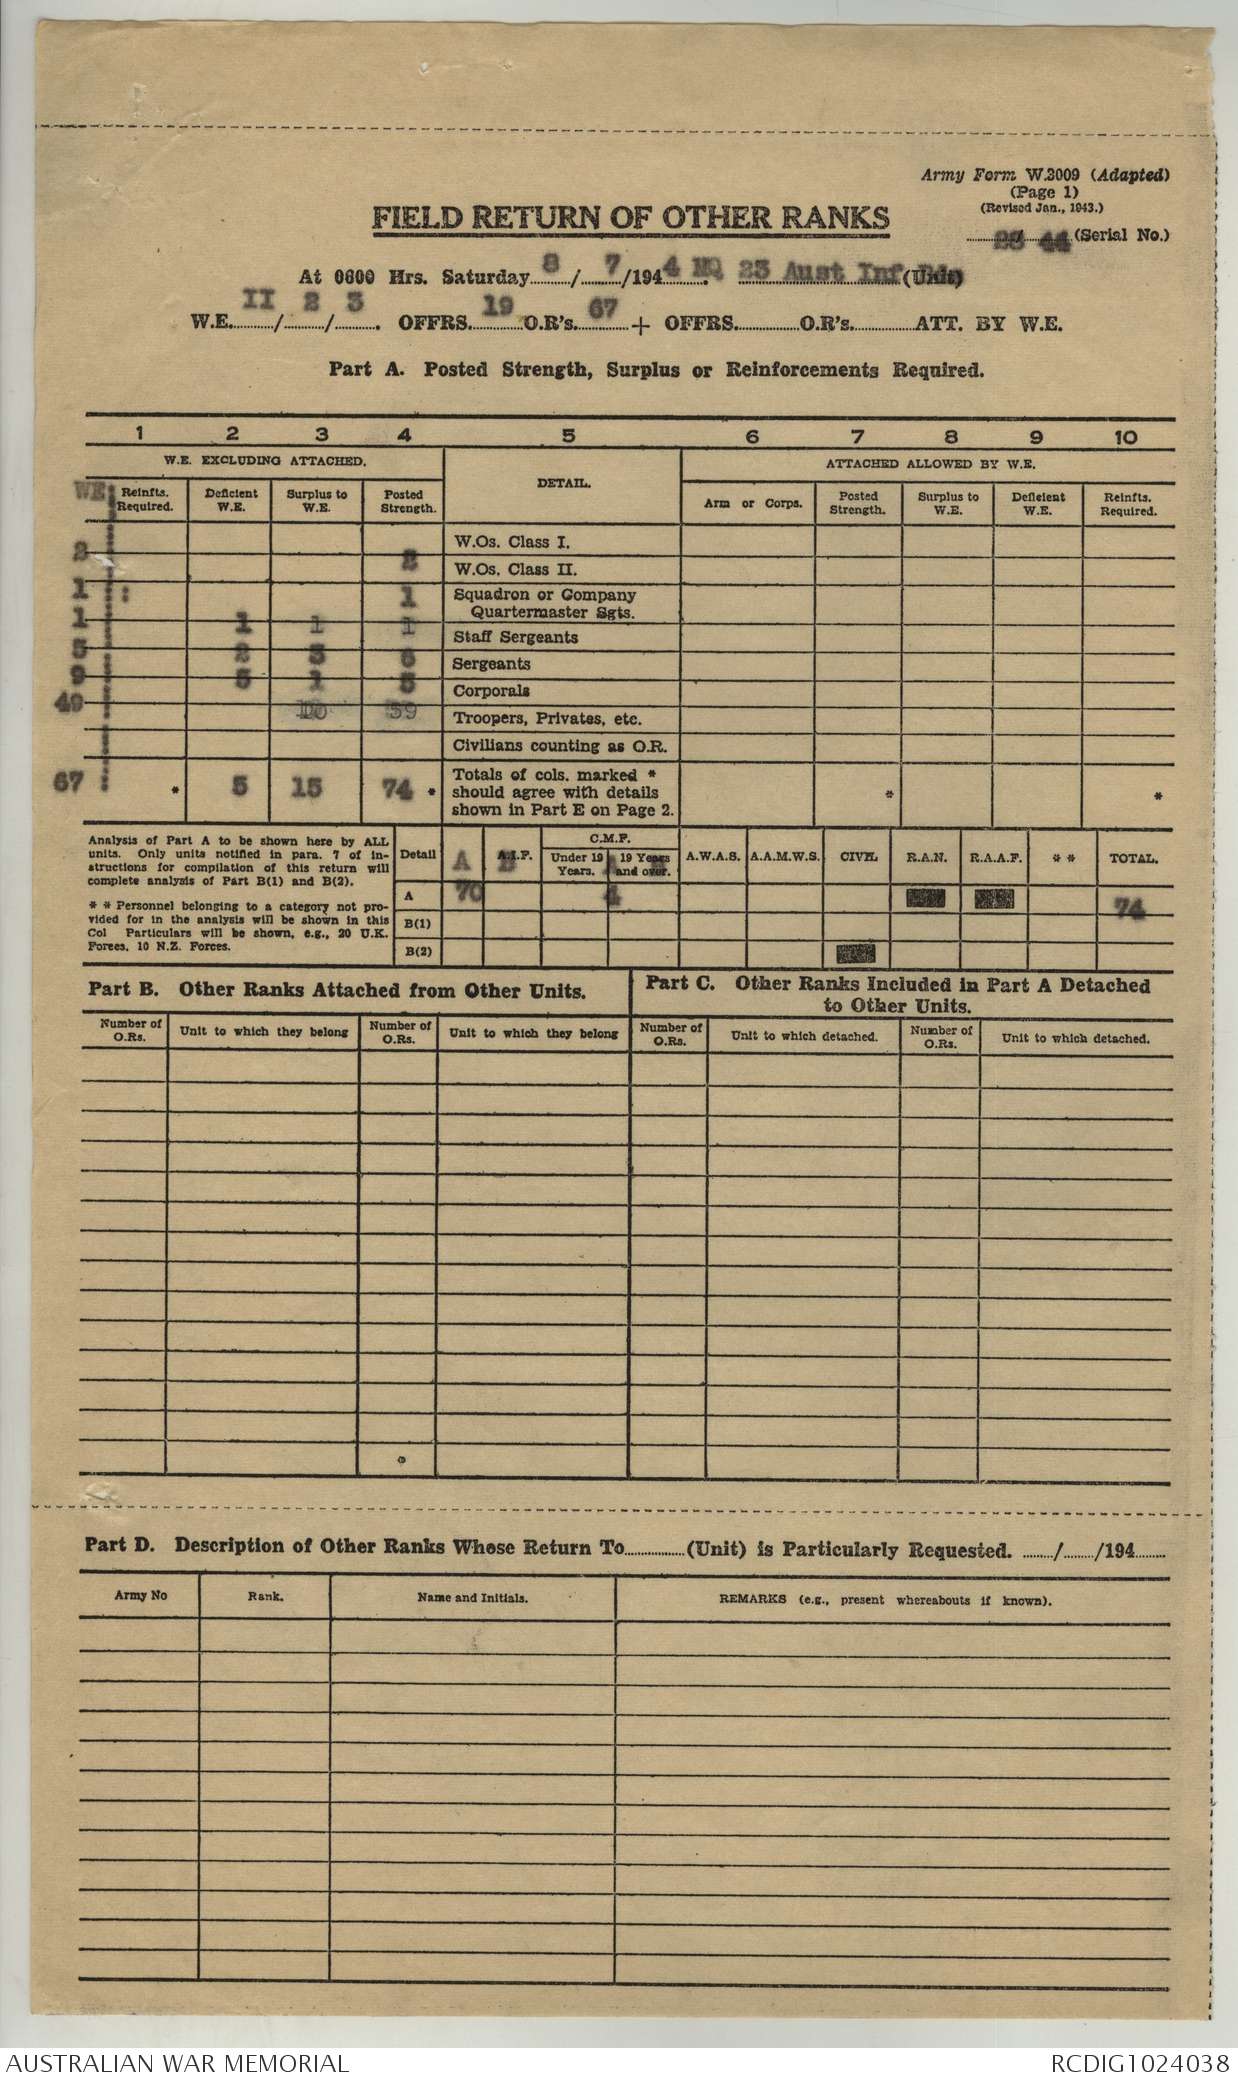 Army Form W.3009 (Adapted)
(Page 1)
(Revised Jan., 1943.)
FIELD RETURN OF OTHER RANKS
44 (Serial No.)
At 0600 Hrs. Saturday 8 / 7 /194 4 HQ 23 Aust Inf Bde (Unit)
W.E. II / 2 / 3 . OFFRS. 19 O.R's. 67 + OFFRS. O.R's. ATT. BY W.E.
Part A. Posted Strength, Surplus or Reinforcements Required.
1 2 3 4 5 6 7 8 9 10
W.E. EXCLUDING ATTACHED. DETAIL. ATTACHED ALLOWED BY W.E.
WE: Reinfts. Required. Deficient W.E. Surplus to W.E. Posted Strength. Arm or Corps. Posted Strength. Surplus to W.E. Deficient W.E. Reinfts. Required.
W.Os. Class I.
2 2 W.Os. Class II.
1 1 Squadron or Company Quartermaster Sgts.
1 1 1 1 Staff Sergeants
5 2 3 6 Sergeants
9 5 1 5 Corporals
49 10 59 Troopers, Privates, etc.
Civilians counting as O.R.
67 * 5 15 74 * Totals of cols. marked * should agree with details shown in Part E on Page 2. * *
Analysis of Part A to be shown here by ALL
units. Only units notified in para. 7 of in-
structions for compilation of this return will
complete analysis of Part B(1) and B(2).
* * Personnel belonging to a category not pro-
vided for in the analysis will be shown in this
Col Particulars will be shown, e.g., 20 U.K.
Forces, 10 N.Z. Forces.
Detail A A.I.F. B C.M.F. Under 19 Years. 19 Years and over. A B A.W.A.S. A.A.M.W.S. CIVIL R.A.N. R.A.A.F. * * TOTAL.
A 70 4 74
B(1)
B(2)
Part B. Other Ranks Attached from Other Units.
Part C. Other Ranks Included in Part A Detached
to Other Units.
Number of O.Rs. Unit to which they belong Number of O.Rs. Unit to which they belong Number of O.Rs. Unit to which detached. Number of O.Rs. Unit to which detached.
Part D. Description of Other Ranks Whose Return To (Unit) is Particularly Requested. / /194
Army No Rank. Name and Initials. REMARKS (e.g., present whereabouts if known).
AUSTRALIAN WAR MEMORIAL RCDIG1024038